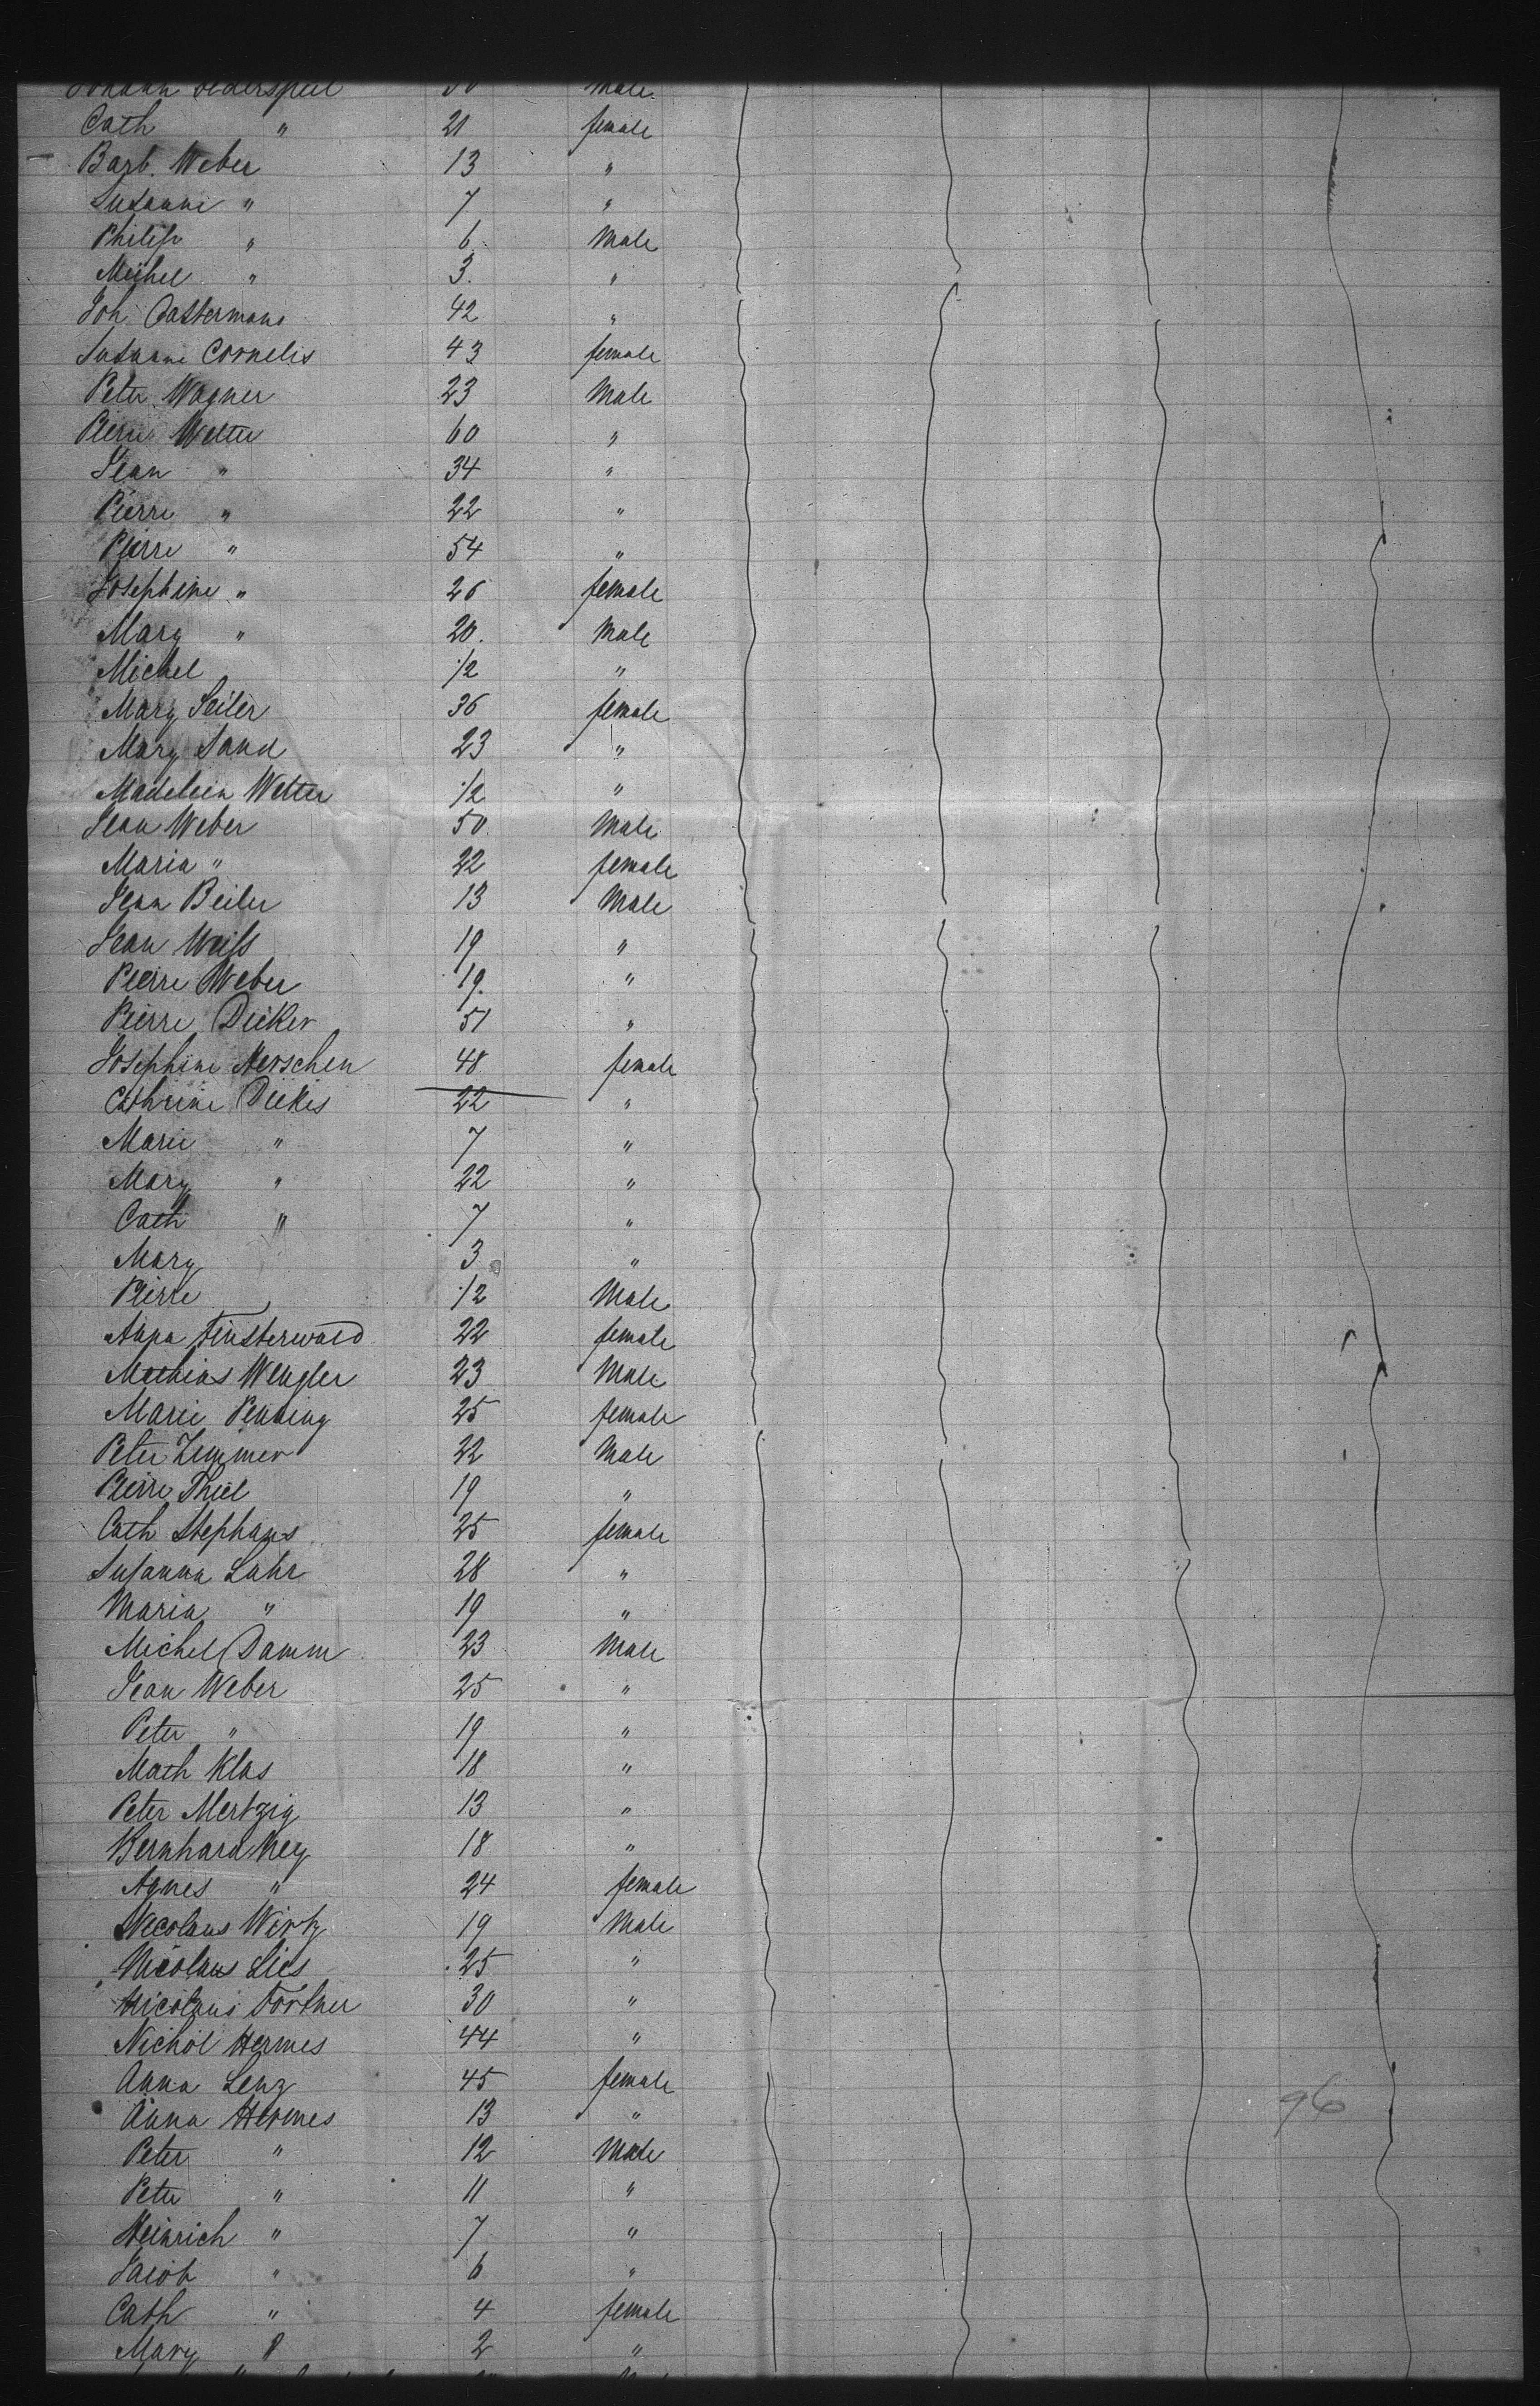 Johann Federspiel 30 Male
Cath " 21 female
Barb. Weber 13 "
Susanne " 7 "
Philip " 6 Male
Michel " 3. "
Joh. Oastermann 42 "
Susanne Cornelis 43 female
Peter Wagner 23 Male
Pierre Welter 60 "
Jean " 34 "
Pierre " 22 "
Pierre " 54 "
Josephine " 26 female
Mary " 20. Male
Michel 1/2 "
Mary Seiler 36 female
Mary Sand 23 "
Madelein Welter 1/2 "
Jean Weber 50 Male
Maria " 22 female
Jean Beiler 13 Male
Jean Weiss 19 "
Pierre Weber 19. "
Pierre Dicker 51 "
Josephine Nerschen 48 female
Cathrine Dickes 22 "
Marie " 7 "
Mary " 22 "
Cath " 7 "
Mary 3 "
Pierre 1/2 Male
Anna Finsterwald 22 female
Mathias Wengler 23 Male
Marie Penning 25 female
Peter Zimmer 22 Male
Pierre Thiel 19 "
Cath Stephans 25 female
Susanna Lahr 28 "
Maria " 19 "
Michel Damm 23 Male
Jean Weber 25 "
Peter " 19 "
Math Klas 18 "
Peter Mertzig 13 "
Bernhard Ney 18 "
Agnes " 24 female
Nicolaus Wirtz 19 Male
Nicolaus Lies 25 "
Nicolaus Fortner 30 "
Nichol Hermes 44 "
Anna Lenz 45 female
Anna Hermes 13 "
96
Peter " 12 Male
Peter " 11 "
Heinrich " 7 "
Jacob " 6 "
Cath " 4 female
Mary " 2 "